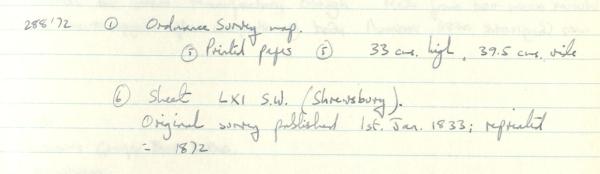 288'72 ① Ordnance Survey map.
⑤ Printed paper ⑤ 33 cms. high, 39.5 cms. wide
⑥ Sheet LXI S.W. (Shrewsbury).
Original survey published 1st. Jan. 1833; reprinted
= 1872